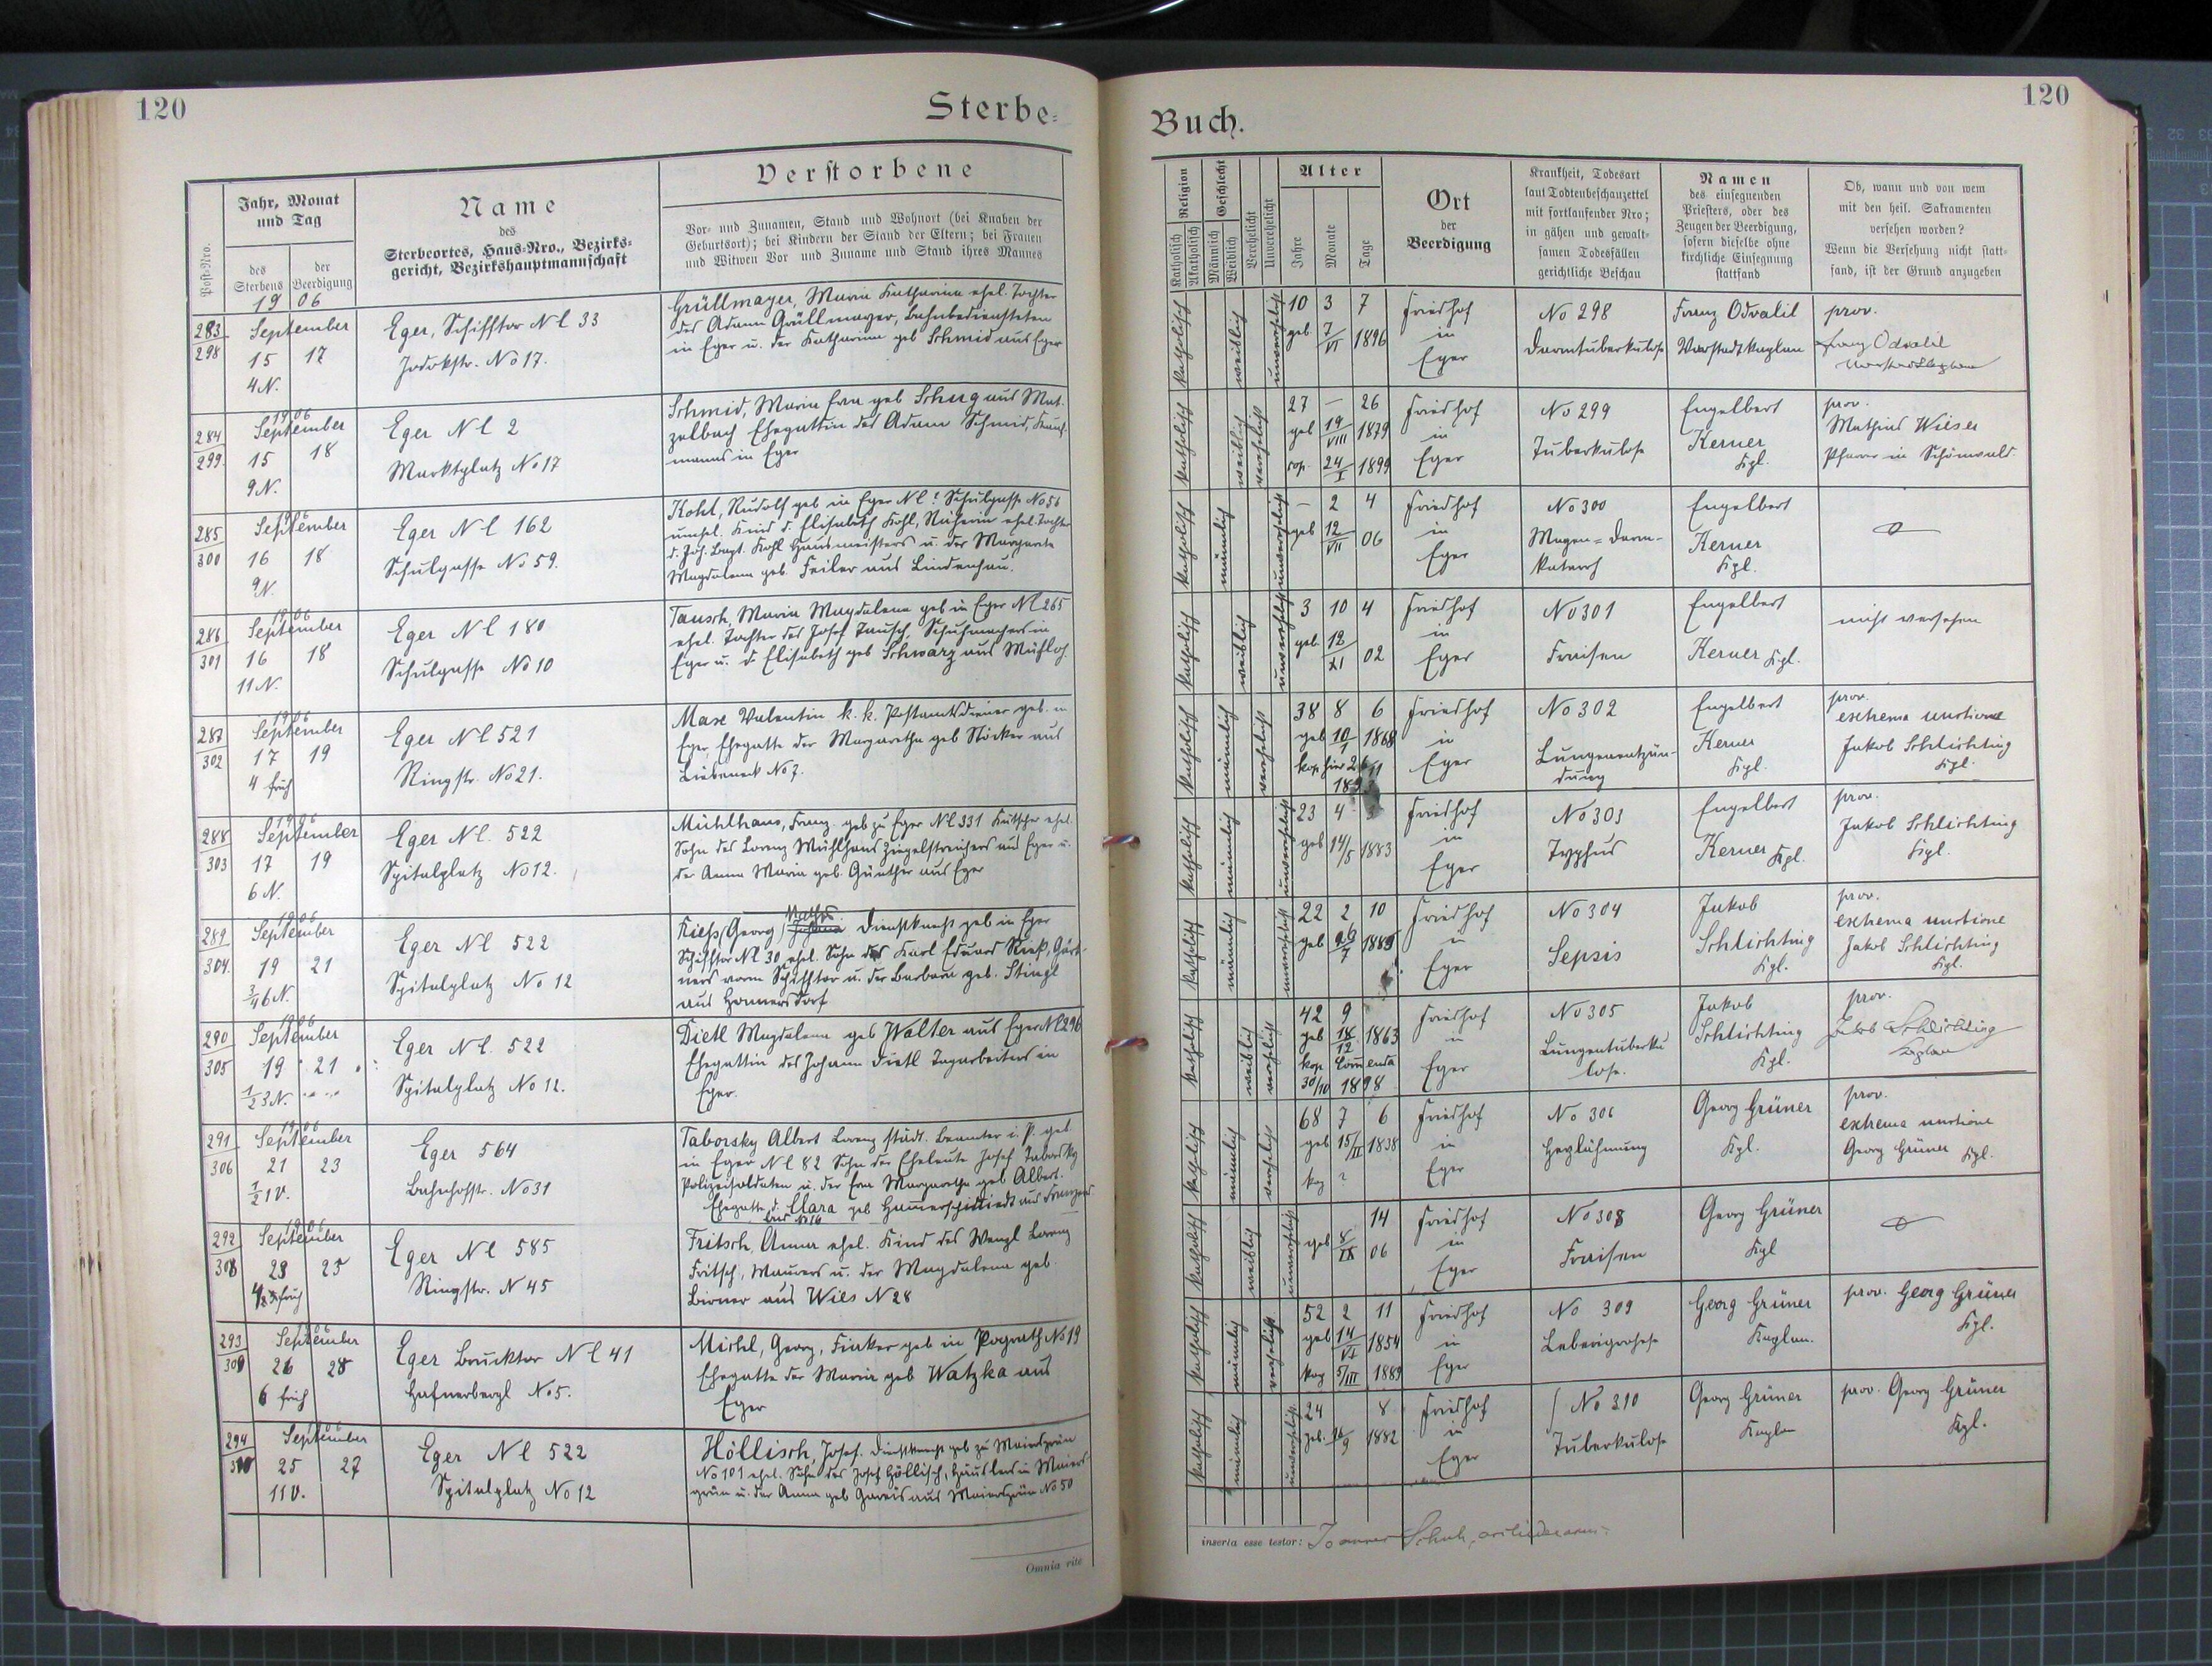 120
Sterbe-
Post-Nro.
Jahr, Monat
und Tag
des
Sterbens
der
Beerdigung
Name
des
Sterbeortes, Haus-Nro., Bezirks-
gericht, Bezirkshauptmannschaft
Verstorbene
Vor- und Zunamen, Stand und Wohnort (bei Knaben der
Geburtsort); bei Kindern der Stand der Eltern; bei Frauen
und Witwen Vor und Zuname und Stand ihres Mannes
1906
283
298
September
15 17
4 N.
Eger, Schifftor N C 33
Jodokstr. No 17.
Grüllmayer, Maria Katharina ehel. Tochter
des Adam Grüllmayer, Bahnbediensteten
in Eger u. der Katharina geb Schmid aus Eger
1906
284
299
September
15 18
9 N.
Eger N C 2
Marktplatz No 17
Schmid, Maria Eva geb Schug aus Mat-
zelbach Ehegattin des Adam Schmid, Kauf-
manns in Eger
1906
285
300
September
16 18
9 N.
Eger N C 162
Schulgasse No 59.
Kohl, Rudolf geb in Eger N C ? Schulgasse No 56
unehel. Kind d. Elisabeth Kohl, Näherin ehel. Tochter
d. Joh. Bapt. Kohl Hausmeisters u. der Margareta
Magdalena geb. Feiler aus Lindenhau.
1906
286
301
September
16 18
11 N.
Eger N C 180
Schulgasse No 10
Tausch, Maria Magdalena geb in Eger N C 265
ehel. Tochter des Josef Tausch, Schuhmachers in
Eger u. d. Elisabeth geb Schwarz aus
1906
287
302
September
17 19
4 früh
Eger N C 521
Ringstr. No 21.
Maxe Valentin k. k. Postamtsdiener geb. in
Eger, Ehegatte der Margaretha geb Stöcker aus
Liebeneck No 7.
1906
288
303
September
17 19
6 N.
Eger N C. 522
Spitalplatz No 12.
Mühlhans, Franz geb zu Eger N C 331 Kutscher ehel.
Sohn des Lorenz Mühlhans Ziegelstreichers aus Eger u.
der Anna Maria geb. Günther aus Eger
1906
289
304
September
19 21
3/4 6 N.
Eger N C 522
Spitalplatz No 12
Kieß, Georg Dienstknecht geb in Eger
Schifftor N C 30, ehel. Sohn des Karl Eduard Kieß, Gärt-
ners vorm Schifftor u. der Barbara geb. Stingl
aus Honnersdorf
1906
290
305
September
19 21
1/2 3 N.
Eger N C. 522
Spitalplatz No 12.
Dietl Magdalena geb Walter aus Eger N C 296
Ehegattin des Johann Dietl Tagarbeiters in
Eger.
1906
291
306
September
21 23
1/2 1 V.
Eger 564
Bahnhofstr. No 31
Taborsky Albert Lorenz städt. Beamter i. P. geb
in Eger N C 82 Sohn der Eheleute Josef Taborsky
Polizeisoldaten u. der Eva Margaretha geb Albert.
Ehegatte d. Clara geb Hammerschmiedt aus Franzens-
bad No 16
1906
292
308
September
23 25
früh
Eger N C 585
Ringstr. N 45
Fritsch, Anna ehel. Kind des Wenzl Lorenz
Fritsch, Maurers u. der Magdalena geb.
Birner aus Wies N 28
1906
293
309
September
26 28
6 früh
Eger Brucktor N C 41
Hafnerbergl No 5.
Michl, Georg, Fiaker geb in Pograth No 19
Ehegatte der Maria geb Watzka aus
Eger
1906
294
310
September
25 27
11 V.
Eger N C 522
Spitalplatz No 12
Höllisch, Josef. Dienstknecht geb zu Maiersgrün
No 101 ehel. Sohn des Josef Höllisch, Häuslers in Maiers-
grün u. der Anna geb Gareis aus Maiersgrün No 50
Omnia rite
Buch.
120
Religion
Katholisch
Akatholisch
Geschlecht
Männlich
Weiblich
Verehelicht
Unverehelicht
Alter
Jahre
Monate
Tage
Ort
der
Beerdigung
Krankheit, Todesart
laut Todtenbeschauzettel
mit fortlaufender Nro;
in gähen und gewalt-
samen Todesfällen
gerichtliche Beschau
Namen
des einsegnenden
Priesters, oder des
Zeugen der Beerdigung,
sofern dieselbe ohne
kirchliche Einsegnung
stattfand
Ob, wann und von wem
mit den heil. Sakramenten
versehen worden?
Wenn die Versehung nicht statt-
fand, ist der Grund anzugeben
katholisch weiblich unverehelicht
10 3 7
geb. 7/VI 1896
Friedhof
in
Eger
No 298
Darmtuberkulose
Franz Odvalil
Vorstadtkaplan
prov.
Franz Odvalil
Vorstadtkaplan
katholisch weiblich verehelicht
27 – 26
geb 19/VIII 1879
cop. 24/I 1899
Friedhof
in
Eger
No 299
Tuberkulose
Engelbert
Kerner
Kpl.
prov.
Mathias Wieser
Pfarrer in Schönwald
katholisch männlich unverehelicht
– 2 4
geb 12/VII 06
Friedhof
in
Eger
No 300
Magen-Darm-
katarrh
Engelbert
Kerner
Kpl.
katholisch weiblich unverehelicht
3 10 4
geb. 12/XI 02
Friedhof
in
Eger
No 301
Fraisen
Engelbert
Kerner Kpl.
nicht versehen
katholisch männlich verehelicht
38 8 6
geb 10/1 1868
kop hier
Friedhof
in
Eger
No 302
Lungenentzün-
dung
Engelbert
Kerner
Kpl.
prov.
extrema unctione
Jakob Schlichting
Kpl.
katholisch männlich unverehelicht
23 4 3
geb 14/5 1883
Friedhof
in
Eger
No 303
Typhus
Engelbert
Kerner Kpl.
prov.
Jakob Schlichting
Kpl.
katholisch männlich unverehelicht
22 2 10
geb
Friedhof
in
Eger
No 304
Sepsis
Jakob
Schlichting
Kpl.
prov.
extrema unctione
Jakob Schlichting
Kpl.
katholisch weiblich verehelicht
42 9
geb 18/12 1863
kop
30/10 1898
Friedhof
in
Eger
No 305
Lungentuberku
lose.
Jakob
Schlichting
Kpl.
prov.
Jakob Schlichting
Kaplan
katholisch männlich verehelicht
68 7 6
geb 15/II 1838
kop ?
Friedhof
in
Eger
No 306
Herzlähmung
Georg Grüner
Kpl.
prov.
extrema unctione
Georg Grüner Kpl.
katholisch weiblich unverehelicht
14
geb 8/IX 06
Friedhof
in
Eger
No 308
Fraisen
Georg Grüner
Kpl
katholisch männlich verehelicht
52 2 11
geb 14/VI 1854
kop 5/III 1889
Friedhof
in
Eger
No 309
Georg Grüner
Kaplan.
prov. Georg Grüner
Kpl.
katholisch männlich unverehelicht
24 8
geb. 16/9 1882
Friedhof
in
Eger
No 310
Tuberkulose
Georg Grüner
Kaplan
prov. Georg Grüner
Kpl.
inserta esse testor: Joannes Schuh,